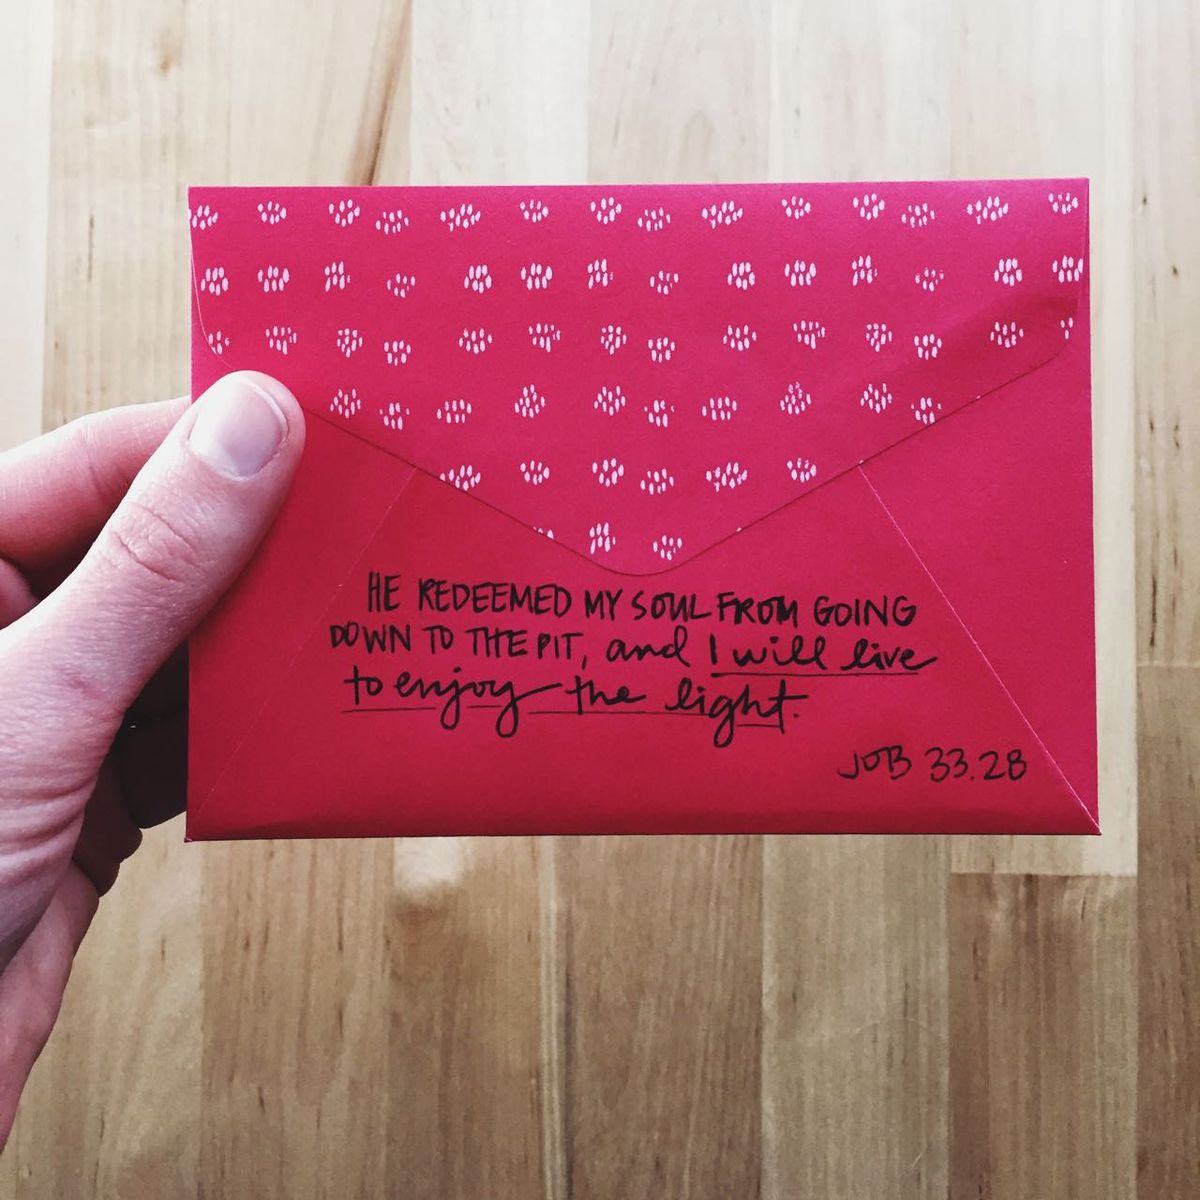 HE REDEEMED MY SOUL FROM GOING
DOWN TO THE PIT, and I will live
to enjoy the light.
JOB 33.28